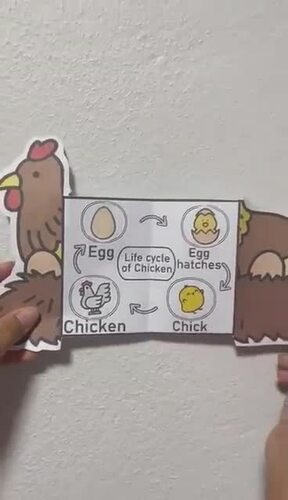 Egg
Life cycle
of Chicken
Egg
hatches
Chicken
Chick